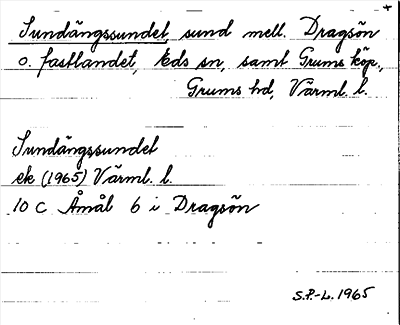 Sundängssundet sund mell. Dragsön
o. fastlandet, Eds sn, samt Grums köp.,
Grums hd, Värml. l.
Sundängssundet
ek (1965) Värml. l.
10 C Åmål 6 i Dragsön
S.P.-L. 1965